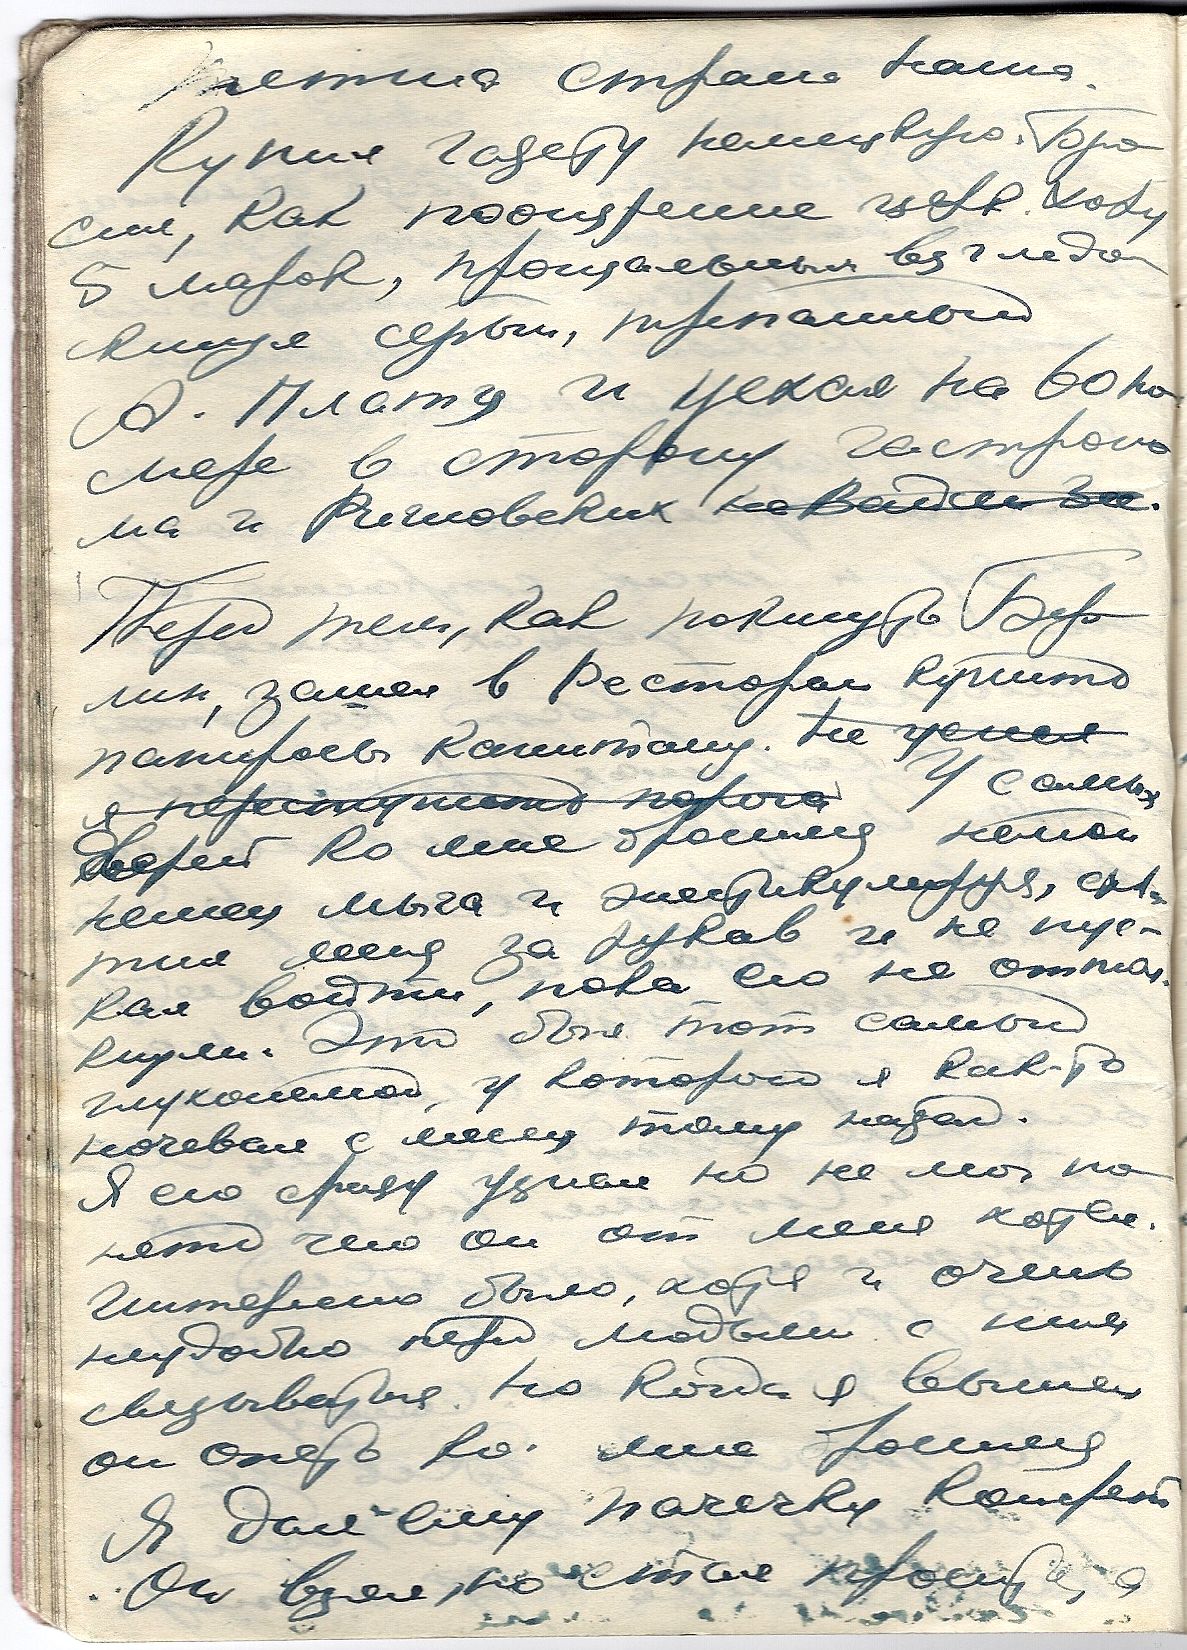 страна наша.
Купил газету немецкую. Бро
сил, как поощрение чел. коку
5 марок, прощальным взглядом
окинул серый, приятный
А. Платц и уехал на 60 но
мере в сторону гастроно
ма и Ричковских
Перед тем, как покинуть Бер
лин, зашел в Ресторан купить
папиросы Капитану. Не успел
я переступить порога У самых
дверей ко мне бросился немой
немец мыча и жестикулируя, схва
тил меня за рукав и не пус-
кал войти, пока его не оттол-
кнули. Это был тот самый
глухонемой, у которого я как-то
ночевал с месяц тому назад.
Я его сразу узнал но не мог по
нять чего он от меня хотел.
Интересно было, хотя и очень
неудобно перед людьми с ним
связываться. Но когда я вышел
он опять ко мне бросился
Я дал ему пачечку конфет
Он взял, но стал